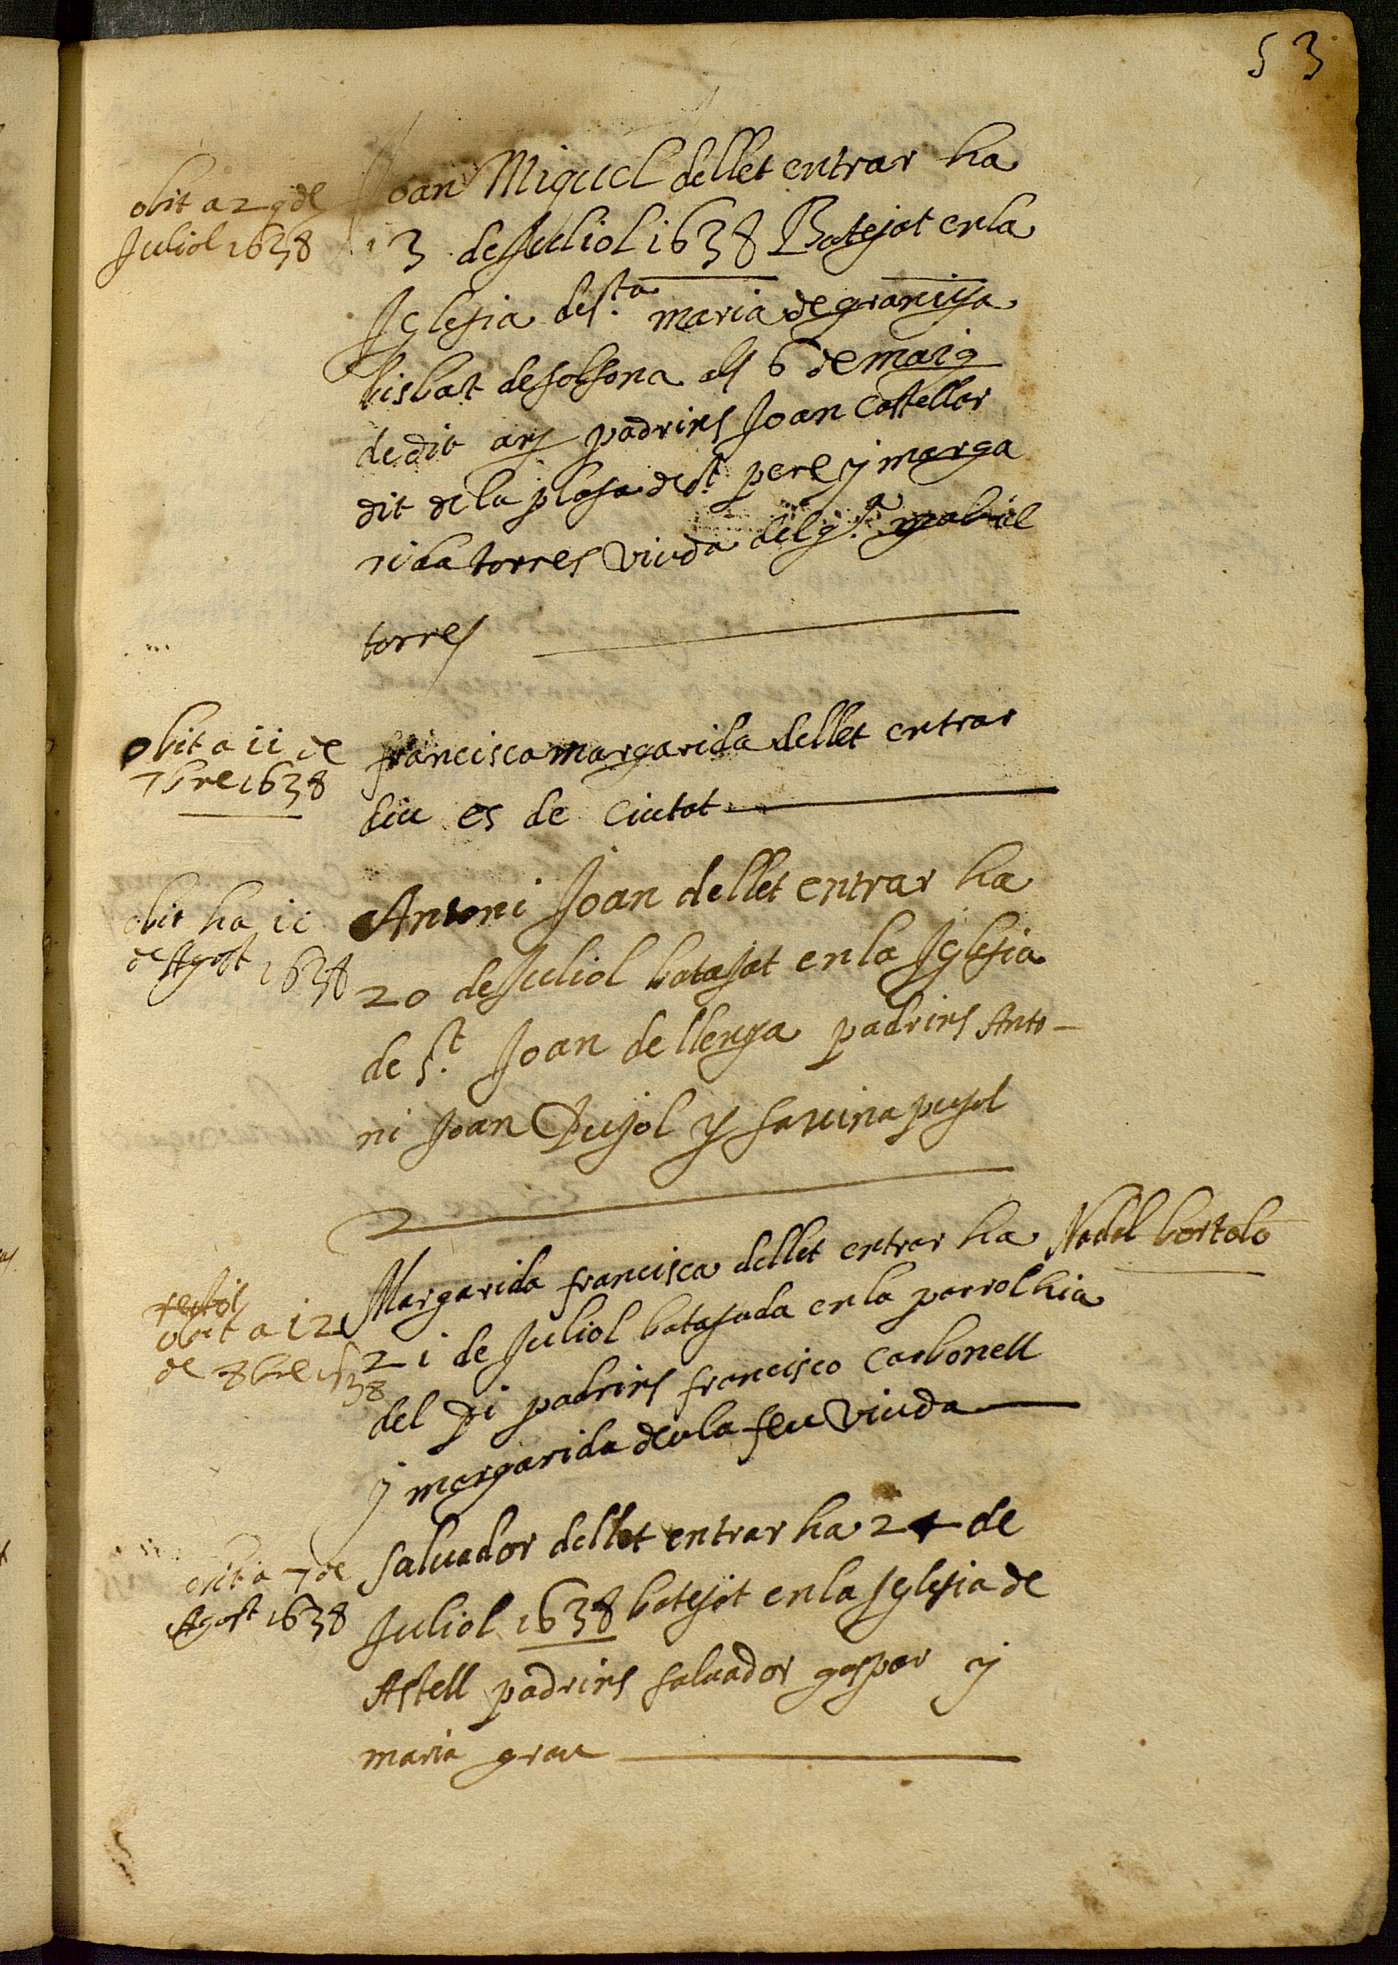 53
obit a 29 de
Juliol 1638
Joan Miquel dellet entrar ha
13 de Juliol 1638 Batejat en la
Iglesia de s.ta maria de granyya
bisbat de solsona als 6 de maig
de dit any padrins Joan Casteller
dit de la plasa de st. pere y marga
rida torres viuda del q.º gabriel
torres
obit a ii de
7bre 1638
francisca margarida dellet entrar
diu es de Ciutat
obit ha ii
de Agost 1638
Antoni Joan dellet entrar ha
20 de Juliol batajat en la Iglesia
de s.t Joan de llerya padrins Anto-
ni Joan Pujol y savina pujol
obit a i2
de 8bre 1638
Margarida francisca dellet entrar ha Nadal bortolo
2i de Juliol batajada en la parrolhia
del Pi padrins francisco Carbonell
y margarida de la seu viuda
obit a 7 de
Agost 1638
Saluador dellet entrar ha 24 de
Juliol 1638 batejat en la Iglesia de
Astell padrins saluador gaspar y
maria grau